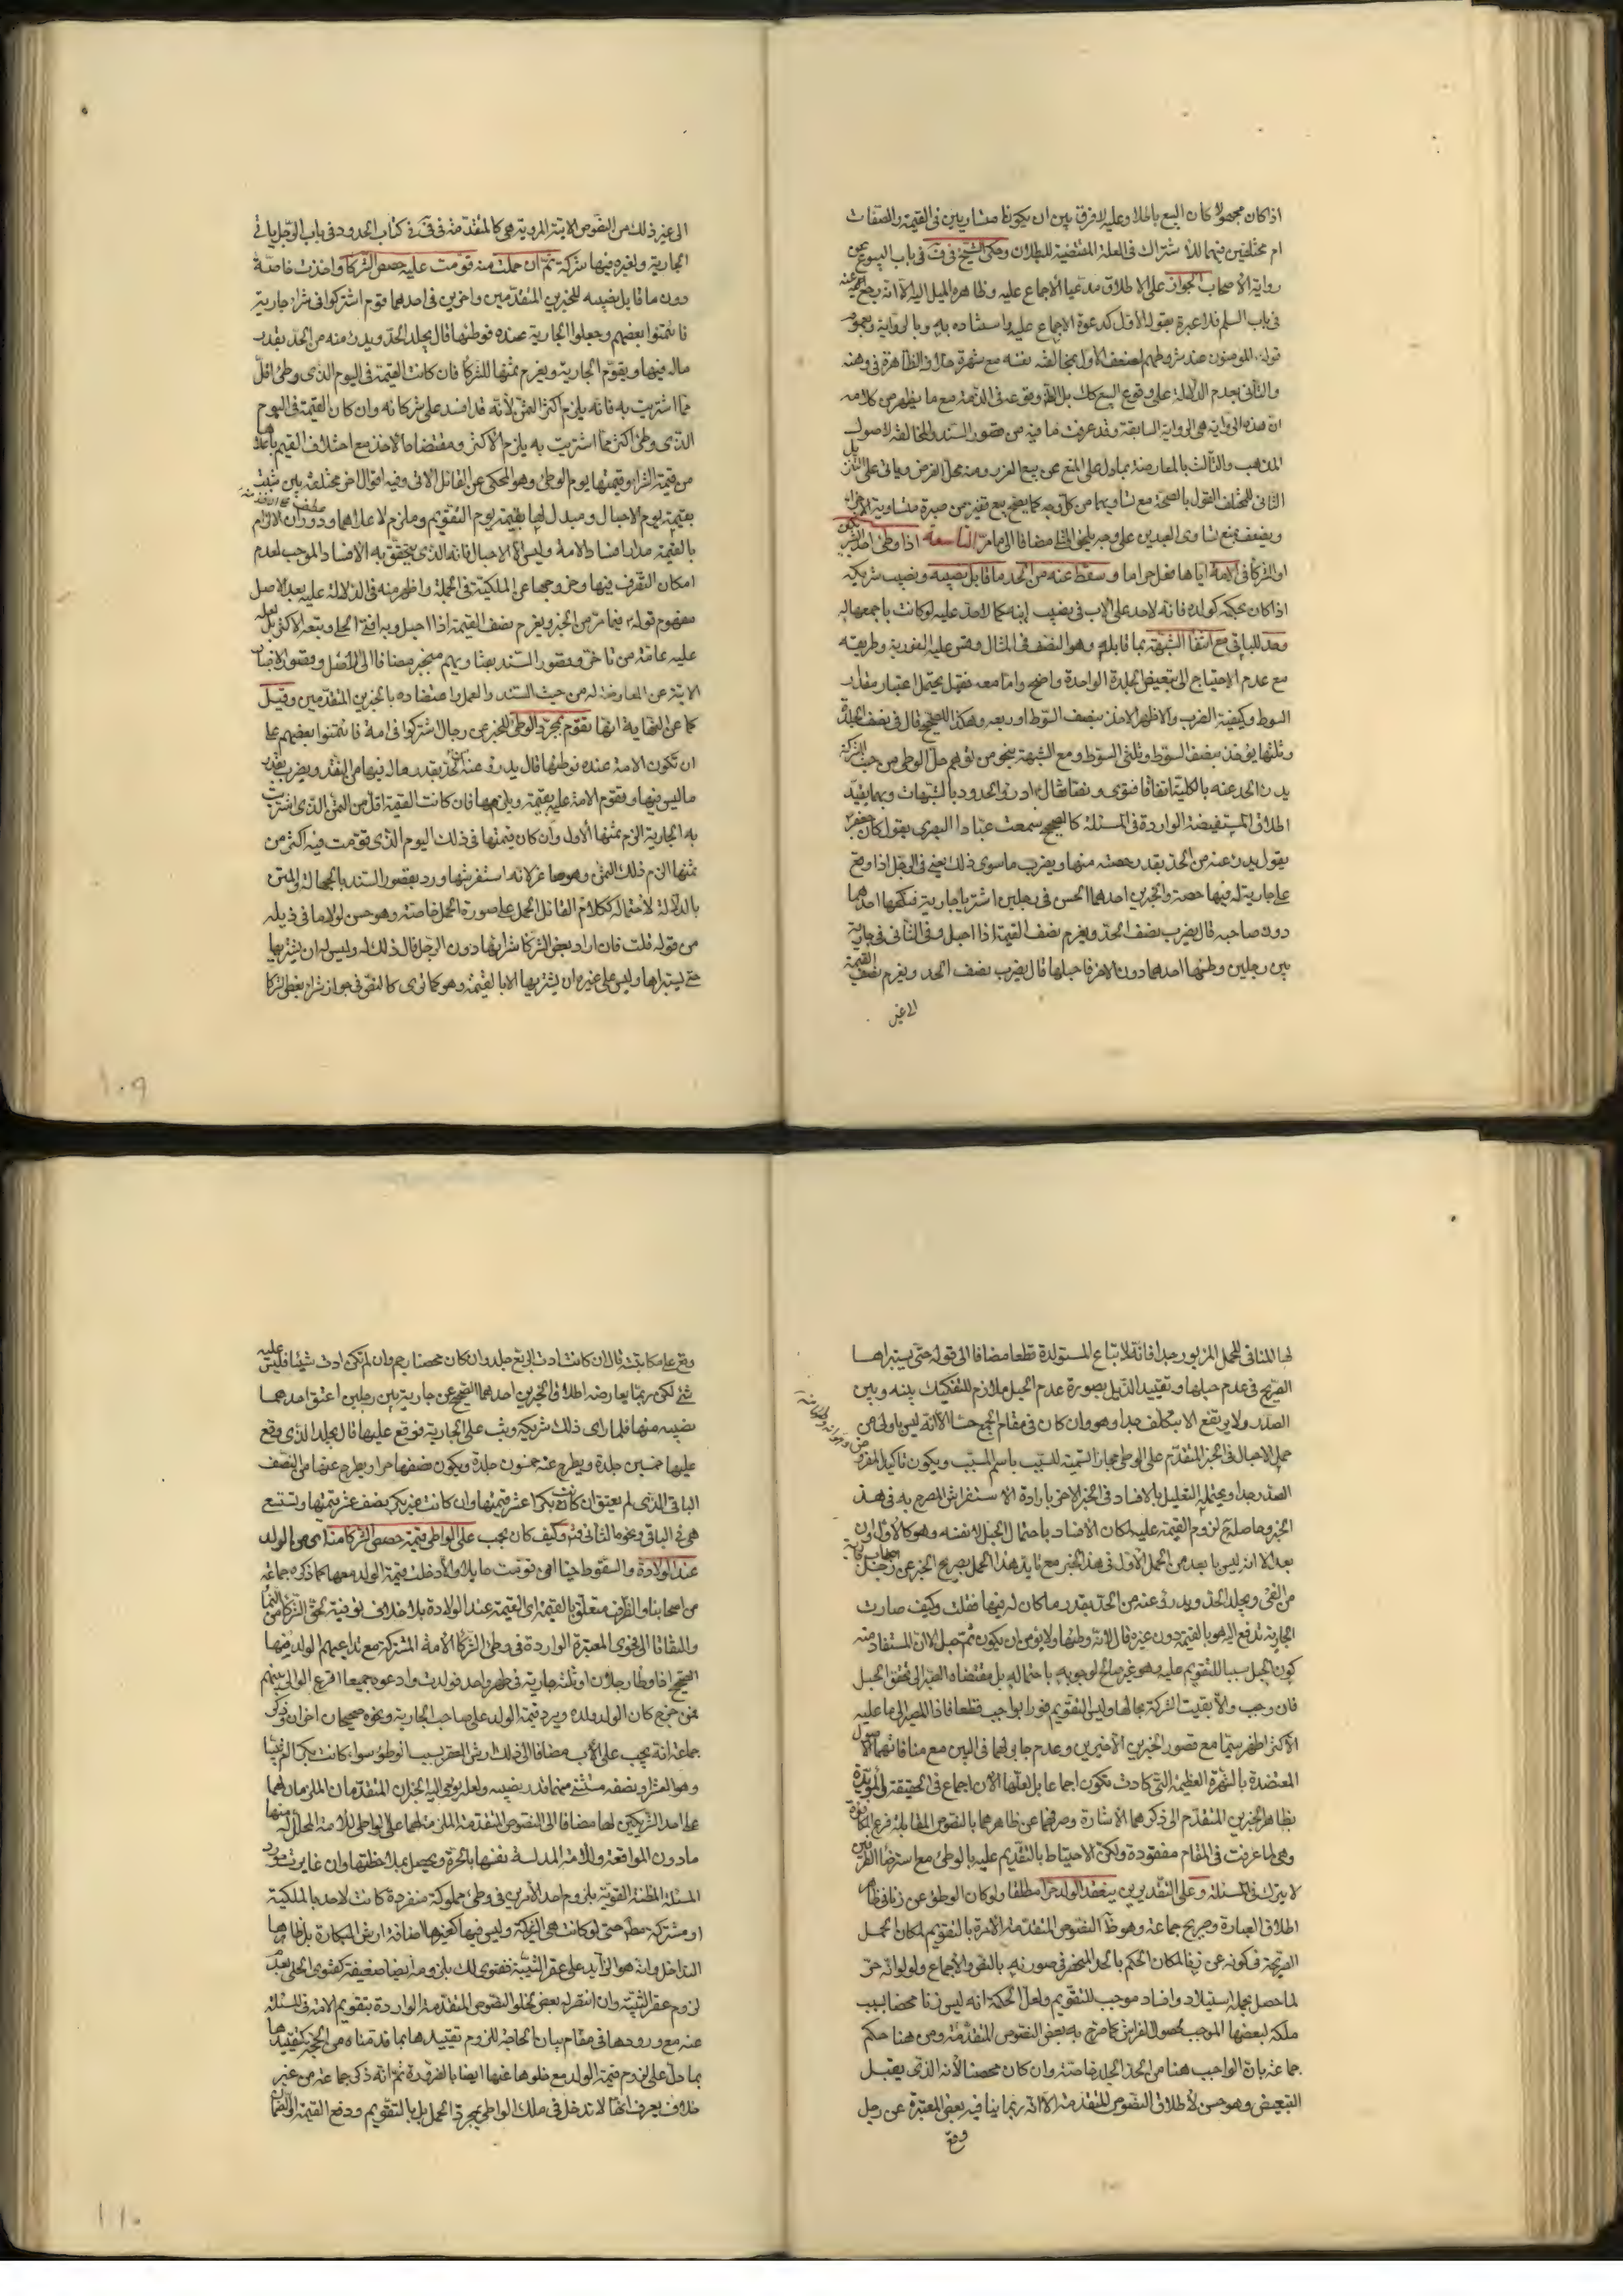 اذا كان مجهولا كان البيع باطلا وعليه لا فرق بين ان يكونا متساويين في القيمة والصفات
ام مختلفين فيهما للاشتراك في العلة المقتضية للبطلان وحكى الشيخ في ف في باب البيوع عن
رواية الاصحاب الجواز على الاطلاق مدعيا الاجماع عليه وظاهره الميل اليه الا انه رجع عنه
في باب السلم فلا عبرة بقوله الاول كدعوة الاجماع عليه واستناده به وبالرواية وبعموم
قوله المؤمنون عند شروطهم لضعف الاول بمخالفته نفسه مع شهرة خلافه الظاهرة في وهنه
والثاني بعدم الدلالة على وقوع البيع كذلك بل وقوعه في الذمة مع ما يظهر من كلامه
ان هذه الرواية هي الرواية السابقة وقد عرفت ما فيه من قصور السند والمخالفة لاصول
المذهب والثالث بالمعارضة بما دل على المنع عن بيع الغرر ومنه محل الفرض وياتي على
الثاني للمختلف القول بالصحة مع تساويهما من كل وجه كما يصح بيع قفيز من صبرة متساوية الاجزاء
ويضعف بمنع تساوي العبدين على وجه يلحق بالمثلي مضافا الى ما مر التاسعة اذا وطئ احد الشريكين
او الشركاء في الامة اياها فعل حراما وسقط عنه من الحد ما قابل نصيبه ونصيب شريكه
اذا كان بحكمه كولده فانه لا حد على الاب في نصيب ابنه كما لا حد عليه لو كانت باجمعها له
وحد للباقي مع انتفاء الشبهة بما قابله وهو النصف في المثال وقس عليه الفورية وطريقه
مع عدم الاحتياج الى تبعيض الجلدة الواحدة واضح واما معه فهل يحتمل اعتبار مقدار
السوط وكيفية الضرب والاظهر الاخذ بنصف السوط او ربعه وهكذا للصحيح قال في نصف الجلدة
وثلثها يؤخذ بنصف السوط وثلثي السوط ومع الشبهة بنحو من توهم حل الوطي من حيث الشركة
يدرء الحد عنه بالكلية اتفاقا فتوى ونصا فقال ادرؤا الحدود بالشبهات وبهما يقيد
اطلاق المستفيضة الواردة في المسئلة كالصحيح سمعت عبادا البصري يقول كان جعفر
يقول يدرء عنه من الحد بقدر حصته منها ويضرب ما سوى ذلك يعني في الرجل اذا وقع
على جارية له فيها حصة والخبرين احدهما الحسن في رجلين اشتريا جارية فنكحها احدهما
دون صاحبه قال يضرب نصف الحد ويغرم نصف القيمة اذا احبل وفي الثاني في جارية
بين رجلين وطئها احدهما دون الاخر فاحبلها قال يضرب نصف الحد ويغرم نصف القيمة
الى غير
الى غير ذلك من النصوص الاتية المروية هي كالمتقدمة في في كتاب الحدود في باب الرجل ياتي
الجارية ولغيره فيها شركة ثم ان حملت منه قومت عليه حصص الشركاء واخذت خاصة
دون ما قابل نصيبه للخبرين المتقدمين واخرين في احدهما قوم اشتركوا في شراء جارية
فائتمنوا بعضهم وجعلوا الجارية عنده فوطئها قال يجلد الحد ويدرء عنه من الحد بقدر
ماله فيها ويقوم الجارية ويغرم ثمنها للشركاء فان كانت القيمة في اليوم الذي وطئ اقل
مما اشتريت به فانه يلزم اكثر الثمن لانه قد افسد على شركائه وان كان القيمة في اليوم
الذي وطئ اكثر مما اشتريت به يلزم الاكثر ومقتضاه الاخذ مع اختلاف القيم باعلاها
من قيمة الشراء وقيمتها يوم الوطئ وهو المحكي عن القائل الاتي وفيه اقوال اخر مختلفة بين مثبت
بقيمة يوم الاحبال ومبدل لها بقيمة يوم التقويم وملزم لاعلاهما ودوران الالزام
بالقيمة مدار افساد الامة وليس الا الاحبال فانه الذي يتحقق به الافساد الموجب لعدم
امكان التصرف فيها وخروجها عن الملكية في الجملة واظهر منه في الدلالة عليه بعد الاصل
مفهوم قوله فيما مر من الخبر ويغرم نصف القيمة اذا احبل وبه افتى الحلي وتبعه الاكثر بل لعله
عليه عامة من تاخر وقصور السند بعضا وبهم منجبر مضافا الى الاصل وقصور الاخبار
الاتية عن المعارضة له من حيث السند والعمل واعتضاده بالخبرين المتقدمين وقيل
كما عن النهاية انها تقوم بمجرد الوطئ للخبر عن رجال اشتركوا في امة فائتمنوا بعضهم على
ان تكون الامة عنده فوطئها قال يدرء عنه الحد بقدر ماله فيها من النقد ويضرب بقدر
ما ليس فيها وتقوم الامة عليه بقيمة ويلزمها فان كانت القيمة اقل من الثمن الذي اشتريت
به الجارية الزم ثمنها الاول وان كان قيمتها في ذلك اليوم الذي قومت فيه اكثر من
ثمنها الزم ذلك الثمن وهو صاغر لانه استفرشها ورد بقصور السند بالجهالة والمتن
بالدلالة لاحتماله ككلام القائل الحمل على صورة الحمل خاصة وهو حسن لولا ما في ذيله
من قوله قلت فان اراد بعض الشركاء شرائها دون الرجل قال ذلك له وليس له ان يشتريها
حتى يستبرأها وليس على غيره ان يشتريها الا بالقيمة وهو كما ترى كالنص في جواز شراء بعض الشركاء
١٠٩
لها المنافي للحمل المزبور جدا فانه لا تباع المستولدة قطعا مضافا الى قوله حتى يستبرأها
الصريح في عدم حبلها وتقييد الذيل بصورة عدم الحبل ملازم للتفكيك بينه وبين
الصدر ولا يرتفع الا بتكلف جدا وهو وان كان في مقام الجمع حسنا الا انه ليس باولى من
حمل الاحبال في الخبر المتقدم على الوطئ مجازا لتسمية السبب باسم المسبب ويكون تاكيدا
الصدر جدا ويحتمله التعليل بالافساد في الخبر الاخر بارادة الاستفراش المصرح به في هذا
الخبر وحاصله لزوم القيمة عليه لمكان الافساد باحتمال الحبل لا نفسه وهو كالاول وان
بعد الا انه ليس بابعد من الحمل الاول في هذا الخبر مع تايد هذا الحمل بصريح الخبر عن رجل اصاب جارية
من الفئ ويجلد الحد ويدرء عنه من الحد بقدر ما كان له فيها فقلت وكيف صارت
الجارية تدفع اليه هو بالقيمة دون غيره قال لانه وطئها ولا يؤمن ان يكون ثم حبل الا ان المستفاد منه
كون الحبل سببا للتقويم عليه وهو غير صالح لوجوبه باحتماله بل مقتضاه الصبر الى تحقق الحبل
فان وجب والا بقيت الشركة بحالها وليس التقويم فورا بواجب قطعا فاذا المصير الى ما عليه
الاكثر اظهر سيما مع قصور الخبرين الاخيرين وعدم جابر لهما في البين مع منافاتهما الاصول
المعتضدة بالشهرة العظيمة التي كادت تكون اجماعا بل لعلها الان اجماع في الحقيقة المؤيدة
بظاهر الخبرين المتقدم الى ذكرهما الاشارة وصرفهما عن ظاهرهما بالنصوص المقابلة فرع المكافاة
وهي لما عرفت في المقام مفقودة ولكن الاحتياط بالتقديم عليه بالوطئ مع استرضاء الطرفين
لا يترك في المسئلة وعلى التقديرين ينعقد الولد حرا مطلقا ولو كان الوطئ عن زنا في ظاهر
اطلاق العبارة وصريح جماعة وهو ظاهر النصوص المتقدمة الامرة بالتقويم لمكان الحمل
الصريحة في كونه عن زنا لمكان الحكم بالحد المنحصر في صورته بالنص والاجماع ولو لا انه حر
لما حصل بحمله استيلاد وافساد موجب للتقويم ولعل الحكمة انه ليس زنا محضا بسبب
ملكه لبعضها الموجب لحصول الفراش كما صرح به بعض النصوص المتقدمة ومن هنا حكم
جماعة بان الواجب هنا من الحد الجلد خاصة وان كان محصنا لانه الذي يقبل
التبعيض وهو حسن لاطلاق النصوص المتقدمة الا انه ربما ينافيه بعض المعتبرة عن رجل
وقع
وقع على مكاتبته قال ان كانت ادت الربع جلد وان كان محصنا رجم وان لم تكن ادت شيئا فليس عليه
شئ لكن ربما يعارضه اطلاق الخبرين احدهما الصحيح عن جارية بين رجلين اعتق احدهما
نصيبه منها فلما راى ذلك شريكه وثب على الجارية فوقع عليها قال يجلد الذي وقع
عليها خمسين جلدة ويطرح عنه خمسون جلدة ويكون نصفها حرا ويطرح عنها من النصف
الباقي الذي لم يعتق ان كانت بكرا عشر قيمتها وان كانت غير بكر نصف عشر قيمتها وتستسعى
هي في الباقي ونحوه الثاني وكيف كان يجب على الواطي قيمة حصص الشركاء منه اي من الولد
عند الولادة والسقوط حيا ان قومت حايلا والا دخلت قيمة الولد معها كما ذكره جماعة
من اصحابنا والظرف متعلق بالقيمة اي القيمة عند الولادة بلا خلاف توفية لحق الشركاء من النماء
والتفاتا الى فحوى المعتبرة الواردة في وطئ الشركاء الامة المشتركة مع تداعيهم الولد فيها
الصحيح اذا وطئ رجلان او ثلثة جارية في طهر واحد فولدت وادعوه جميعا اقرع الوالي بينهم
فمن خرج كان الولد ولده ويرد قيمة الولد على صاحب الجارية ونحوه صحيحان اخران وذكر
جماعة انه يجب على الاب مضافا الى ذلك ارش العقر بسبب الوطئ سواء كانت بكرا ام ثيبا
وهو العشر او نصفه مستثنى منهما قدر نصيبه ولعل يومى اليه الخبران المتقدمان الملزمان لهما
على احد الشريكين لها مضافا الى النصوص المتقدمة الملزمة لهما على الواطي للامة المحلل له منها
ما دون المواقعة وللامة المدلسة نفسها بالحرة ويحصل بملاحظتها وان غايرت مورد
المسئلة المظنة القوية بلزوم احد الامرين في وطئ مملوكة منفردة كانت لاحد بالملكية
او مشتركة مطلقا حتى لو كانت هي الشركة وليس فيها كغيرها اضافة ارش البكارة بل ظاهرها
التداخل وانه هو الزايد على عقر الثيبة ففتوى الك بلزومه ايضا ضعيفة كفتوى الحلي بعدم
لزوم عقر الثيبة وان انتصر له بعض بخلو النصوص المتقدمة الواردة بتقويم الامة في المسئلة
عنه مع ورودها في مقام بيان الحاجة للزوم تقييدها بما قدمناه من الحجة كتقييدها
بما دل على لزوم قيمة الولد مع خلوها عنها ايضا بالضرورة ثم انه ذكر جماعة من غير
خلاف يعرف انها لا تدخل في ملك الواطي بمجرد الحمل بل بالتقويم ودفع القيمة او الضمان
١١٠